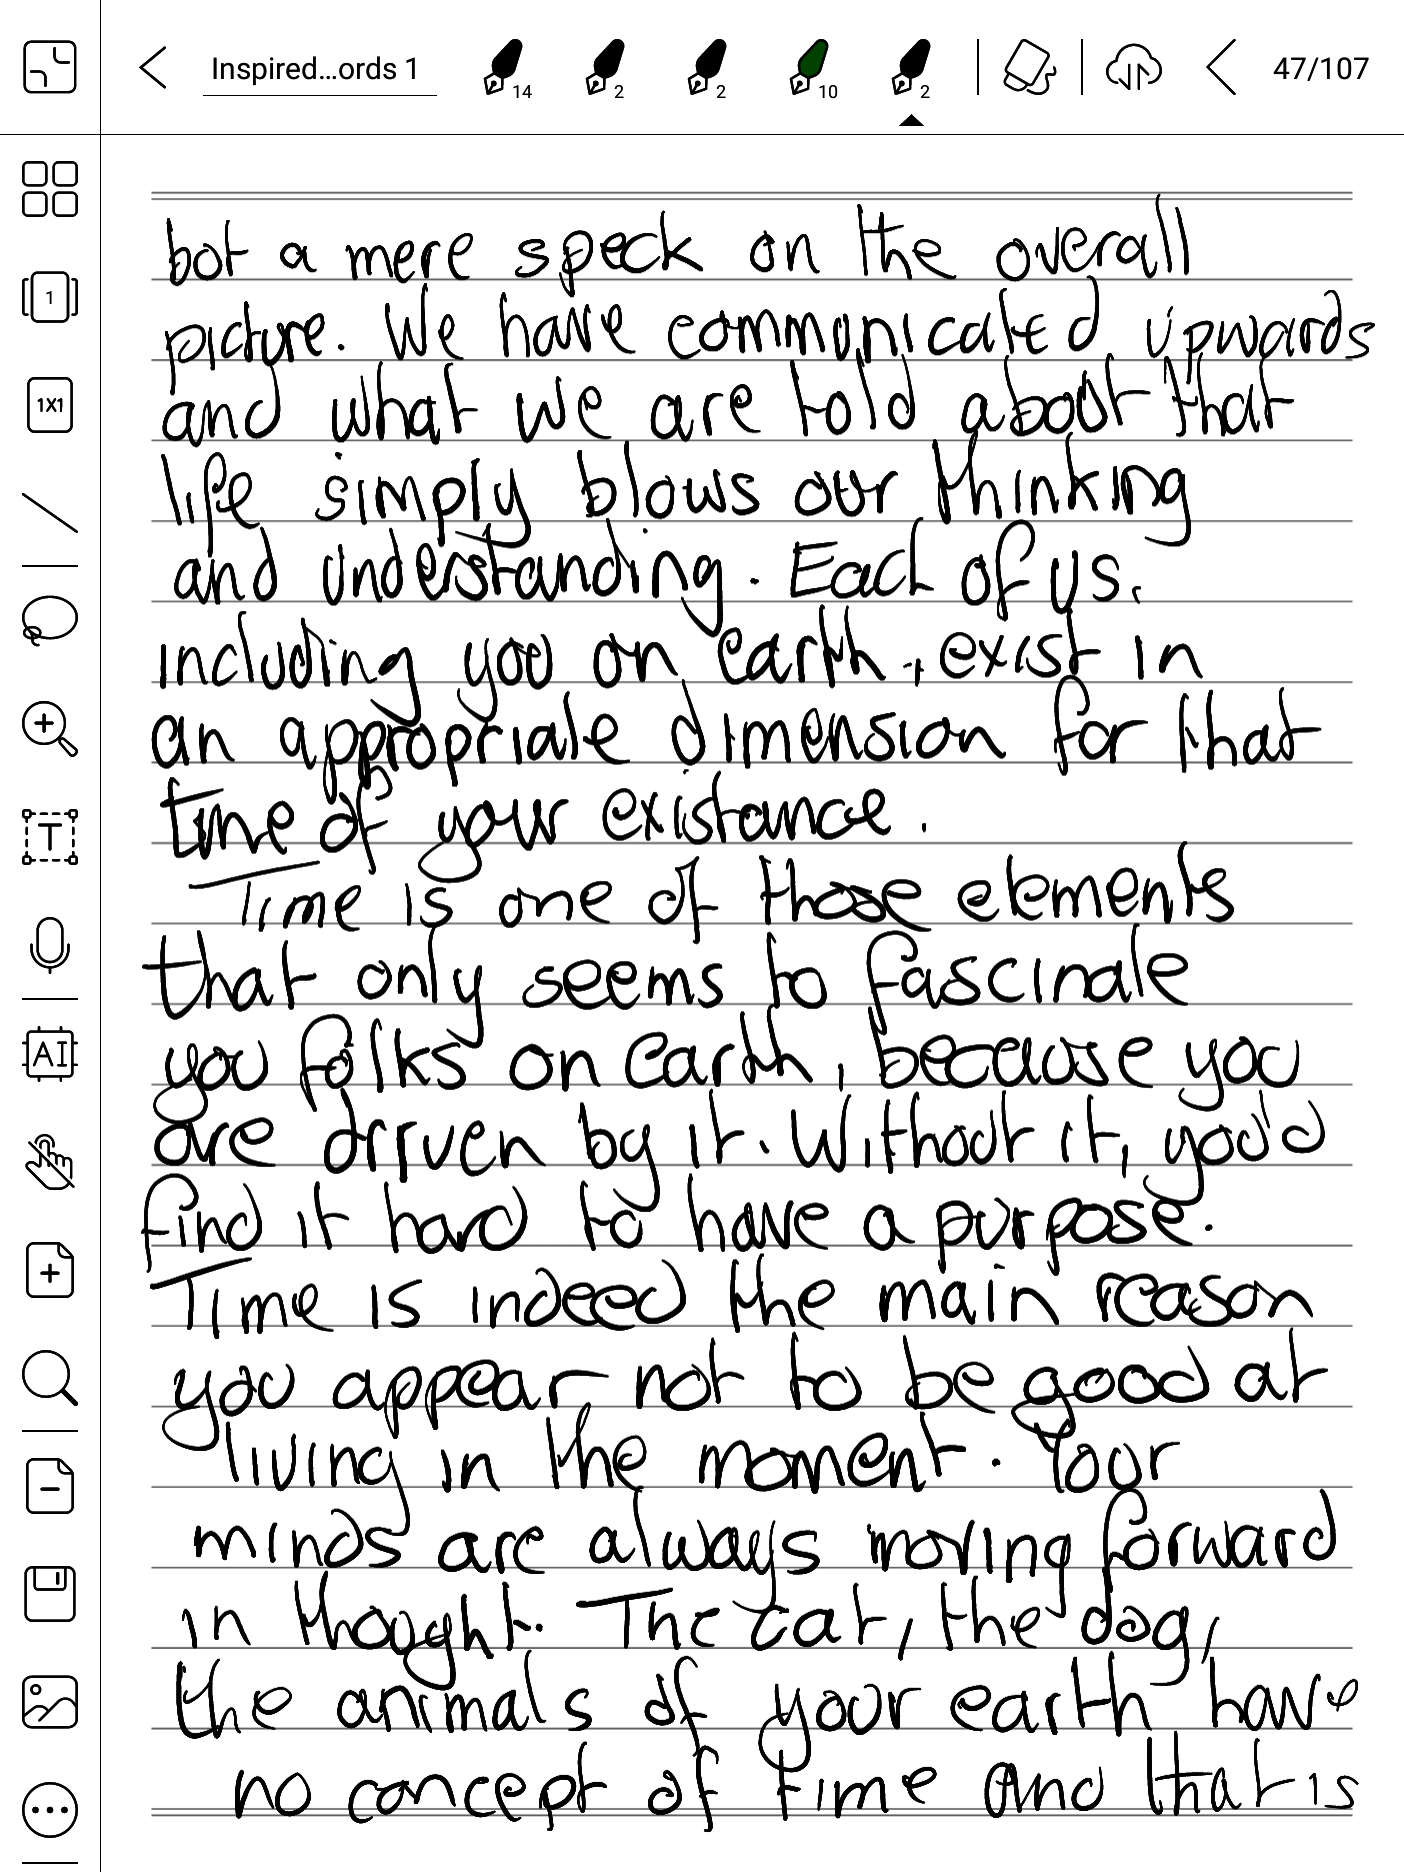 Inspired...ords 1
14
2
2
10
2
47/107
1
1X1
T
AI
bot a mere speck on the overall
picture. We have communicated upwards
and what we are told about that
life simply blows our thinking
and understanding. Each of us,
including you on earth, exist in
an appropriate dimension for that
time of your existance.
Time is one of those elements
that only seems to fascinate
you folks on earth, because you
are driven by it. Without it, you'd
find it hard to have a purpose.
Time is indeed the main reason
you appear not to be good at
living in the moment. Your
minds are always moving forward
in thought. The cat, the dog,
the animals of your earth have
no concept of time and that is